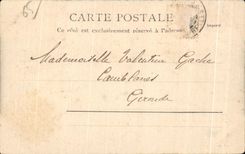 CARTE POSTALE
Ce côté est exclusivement réservé à l'adresse
Mademoiselle Valentine Gache
Camblanes
Gironde